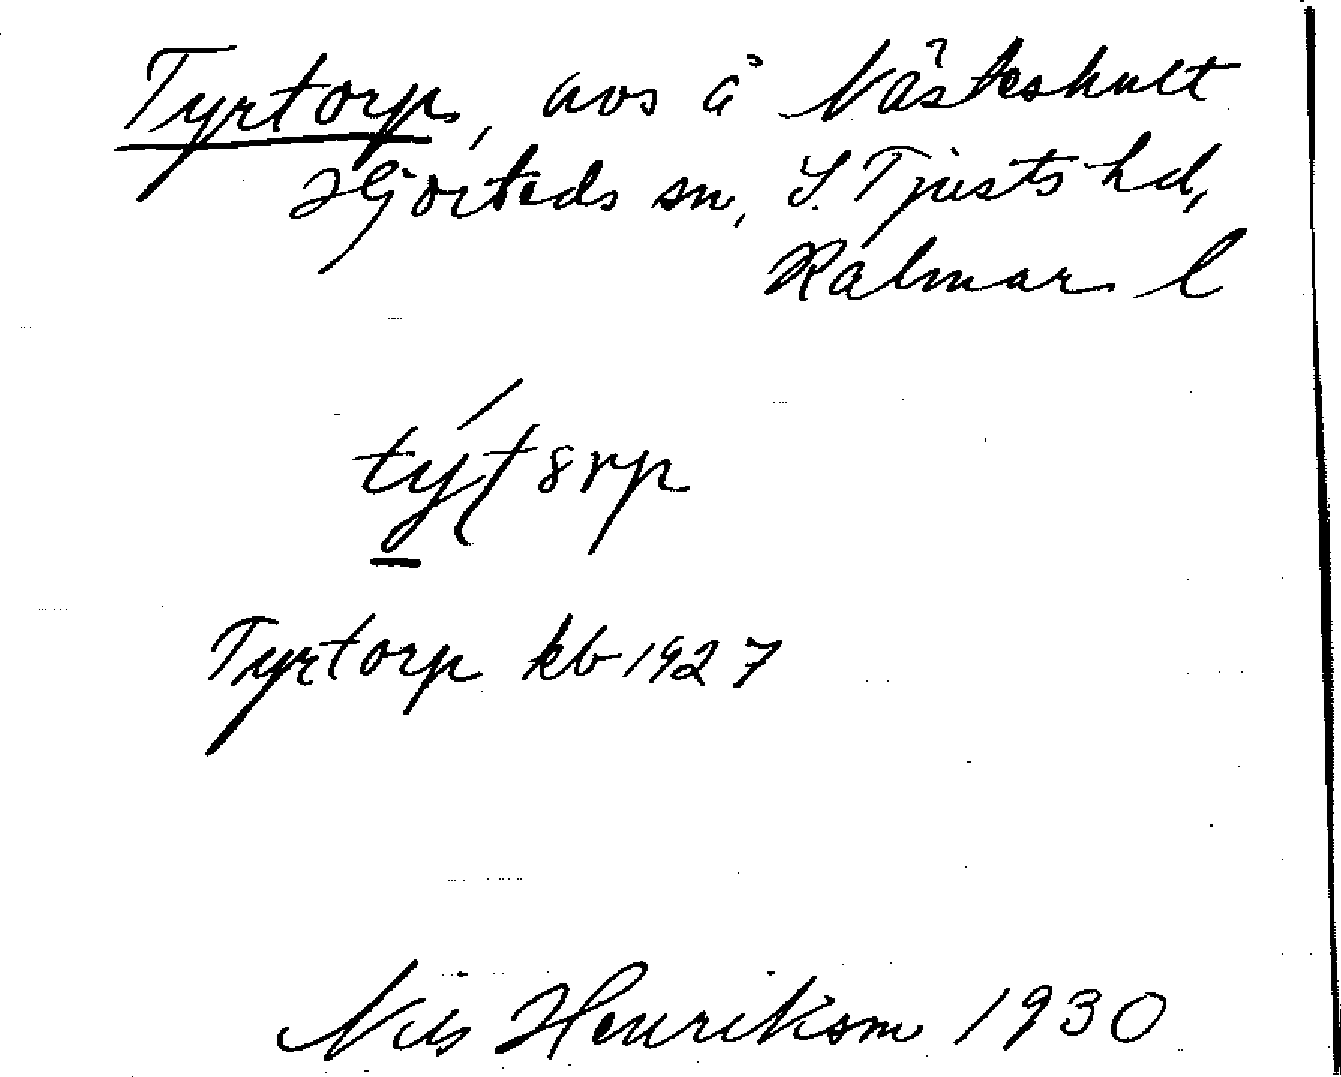 Tyrtorp, avs å Nåsteshult
Hjorteds sn, S. Tjusts hd,
Kalmar l
Tyrtorp kb 1927
Nils Henrikson 1930